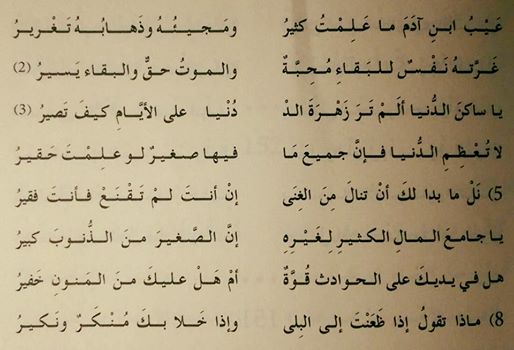 عَيْبُ ابنِ آدَمَ ما عَلِمْتُ كثيرُ ومَـجـيـئُـهُ وذَهـابُـهُ تَغْريرُ
غَرَّتهُ نَـفْـسٌ لـلبَقـاءِ مُحِبَّةٌ والـموتُ حقٌّ والـبـقاء يَسـيرُ (2)
يا ساكنَ الدُّنيا ألَـمْ تَرَ زَهْـرَةَ الدْ دُنْيـا على الأيَّـامِ كيفَ تَصيرُ (3)
لا تُعْظِمِ الدُّنيا فـإنَّ جـميعَ مَا فـيها صـغيرٌ لو عـلِمْتَ حَقـيرُ
5) نَلْ ما بدا لكَ أنْ تنالَ مِنَ الغِنَى إنْ أنـتَ لـمْ تَـقْـنَعْ فـأنتَ فقيرُ
يا جـامعَ المـالِ الكـثيرِ لِغَيْرِهِ إنَّ الصَّـغيرَ مـنَ الذُّنـوبِ كبيرُ
هل في يديكَ على الحوادثِ قُوَّةٌ أمْ هَلْ عليكَ منَ المَنونِ خَفيرُ
8) ماذا تقولُ إذا ظَعَنْتَ إلى البِلى وإذا خَلا بكَ مُنْكَرٌ ونَكيرُ